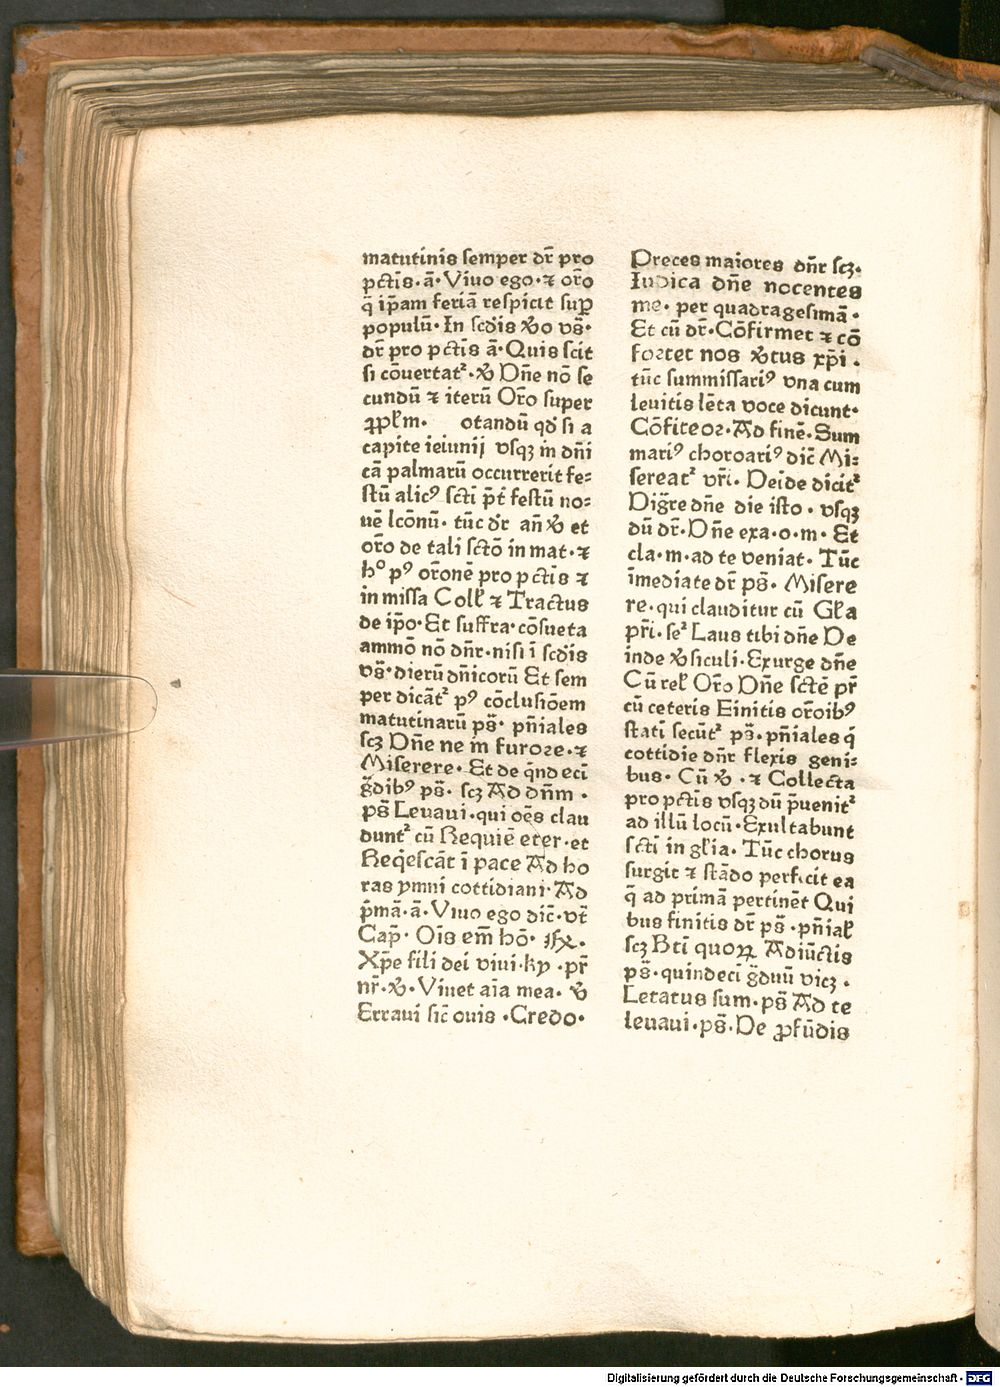 matutinis semper dr̄ pro
pctīs·ā·Viuo ego·⁊ or̄o
q̄ ip̄am feriā respicit suꝑ
populū·In scd̄is v̊o vs̄·
dr̄ pro pctīs ā·Quis scit
si cōuertat᷑·v̊ Dn̄e nō se
cundū ⁊ iterū Or̄o super
ꝓpl̄m· otandū qd̕ si a
capite ieiunij vsqꝫ in dn̄i
cā palmarū occurrerit fe⸗
stū alicꝰ scti p̄t festū no⸗
uē lcōnū· tūc dr̄ an̄ v̊ et
or̄o de tali sctō in mat·⁊
h° pꝰ or̄onē pro pctīs ⁊
in missa Coll̄ ⁊ Tractus
de ip̄o·Et suffra·cōsueta
ammō nō dn̄r·nisi ī scd̄is
vs̄·dierū dn̄icorū Et sem
per dicāt᷑ pꝰ cōclusiōem
matutinarū ps̄· pn̄iales
scꝫ Dn̄e ne in furore·⁊
Miserere·Et de qn̄deci
ḡdibꝰ ps̄· scꝫ Ad dn̄m·
ps̄ Leuaui·qui oēs clau
dunt᷑ cū Requiē eter·et
Reqēscāt ī pace Ad ho
ras ymni cottidiani·Ad
p̄mā·ā·Viuo ego dic̄·vt̄
Cap̄· Ois em̄ hō·
Xp̄e fili dei viui·ky·pr̄
nr̄·v̊·Viuet aīa mea· v̊
Erraui sic̄ ouis·Credo·
Preces maiores dn̄r scꝫ·
Iudica dn̄e nocentes
me· per quadragesimā·
Et cū dr̄·Cōfirmet ⁊ cō
fortet nos v̊tus xp̄i·
tūc summissariꝰ vna cum
leuitis lēta voce dicunt·
Cōfiteor·Ad finē·Sum
mariꝰ choroariꝰ dic̄ Mi⸗
sereat᷑ vr̄i· Deīde dicit᷑
Digr̄e dn̄e die isto· vsqꝫ
dū dr̄·Dn̄e exa·o·m· Et
cla·m·ad te veniat· Tūc
īmediate dr̄ ps̄· Misere
re·qui clauditur cū Gl̄a
pr̄i·se᷑ Laus tibi dn̄e De
inde v̊siculi·Exurge dn̄e
Cū rel̄ Or̄o Dn̄e sctē pr̄
cū ceteris Finitis or̄oibꝰ
statī secūt᷑ ps̄·pn̄iales q̄
cottidie dn̄r flexis geni⸗
bus· Cū v̊·⁊ Collecta
pro pctīs vsqꝫ dū p̄uenit᷑
ad illū locū·Exultabunt
sctī in gl̄ia· Tūc chorus
surgit ⁊ stādo perficit ea
q̄ ad primā pertinēt Qui
bus finitis dr̄ ps̄·pn̄ial̄
scꝫ Btī quoꝝ Adiūctis
ps̄·quindecī ḡduū vicꝫ·
Letatus sum·ps̄ Ad te
leuaui·ps̄·De ꝓfūdis
Digitalisierung gefördert durch die Deutsche Forschungsgemeinschaft - DFG